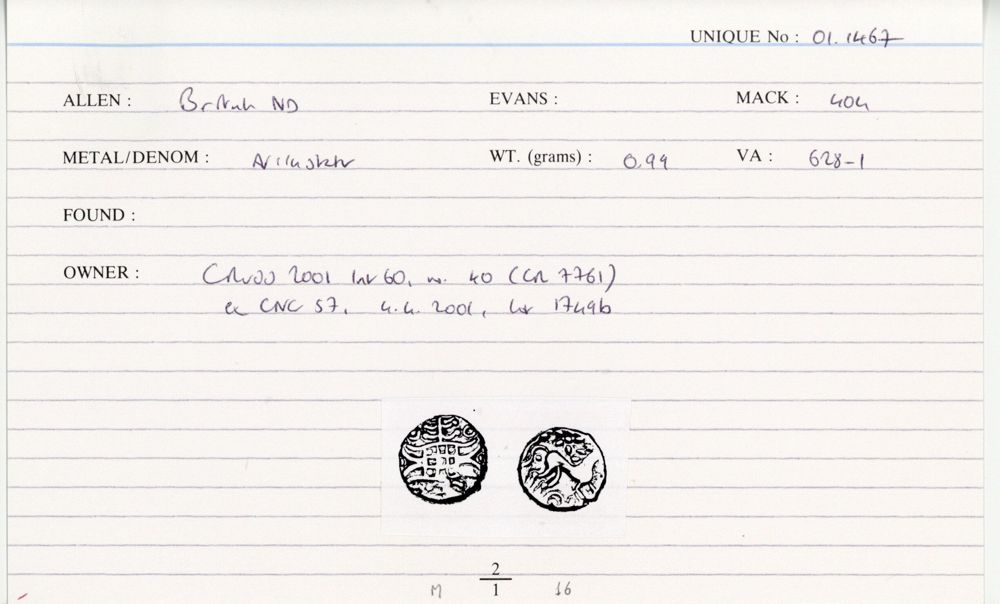 UNIQUE No : 01.1467
ALLEN : British ND EVANS : MACK : 404
METAL/DENOM : WT. (grams) : 0.99 VA : 628-1
FOUND :
OWNER : 2001 60, no. 40 (CR 7761)
ex CNG 57, 4.4. 2001, lot 1749b
2
M 1 16